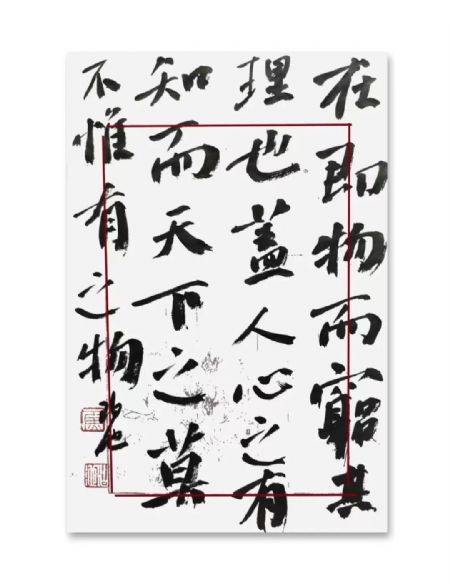 在即物而窮其
理也蓋人心之有
知而天下之莫
不惟有之物